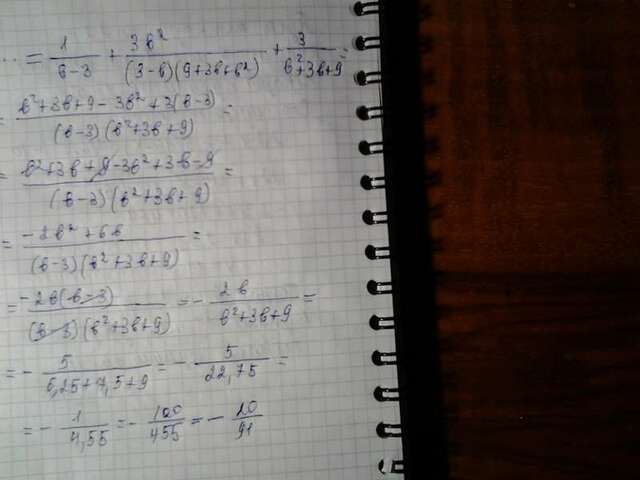 ... = 1/(b-3) + 3b²/((3-b)(9+3b+b²)) + 3/(b²+3b+9) =
= (b²+3b+9-3b²+3(b-3))/((b-3)(b²+3b+9)) =
= (b²+3b+9-3b²+3b-9)/((b-3)(b²+3b+9)) =
= (-2b²+6b)/((b-3)(b²+3b+9)) =
= -2b(b-3)/((b-3)(b²+3b+9)) = - 2b/(b²+3b+9) =
= - 5/(6,25+7,5+9) = - 5/22,75 =
= - 1/4,55 = - 100/455 = - 20/91